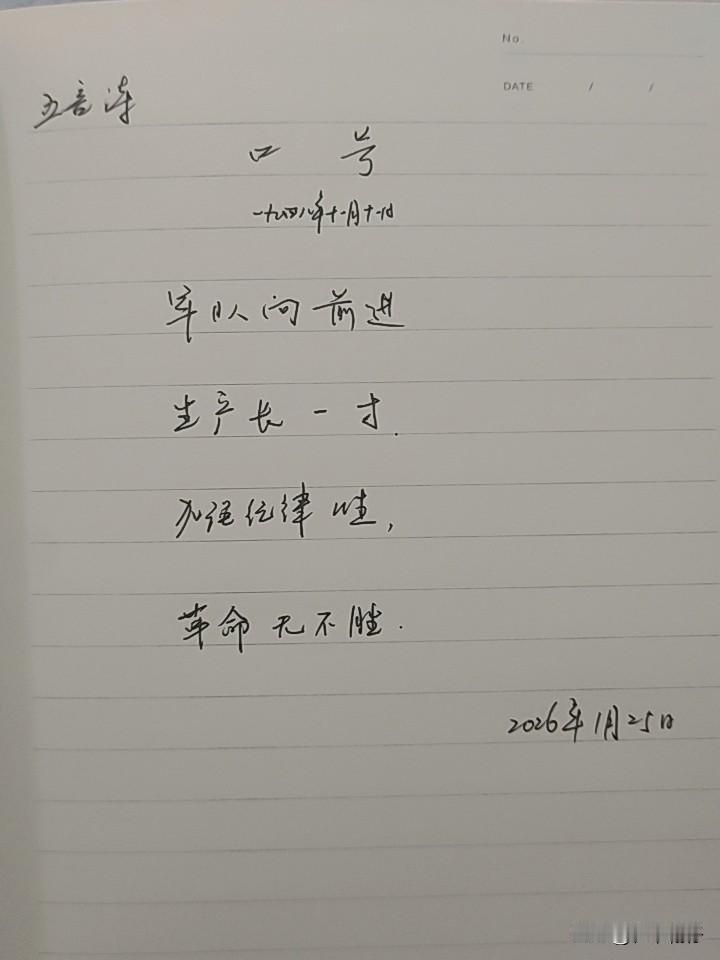 No.
DATE / /
五言诗
口号
一九四八年十一月十一日
军队向前进
生产长一寸.
加强纪律性,
革命无不胜.
2026年1月25日